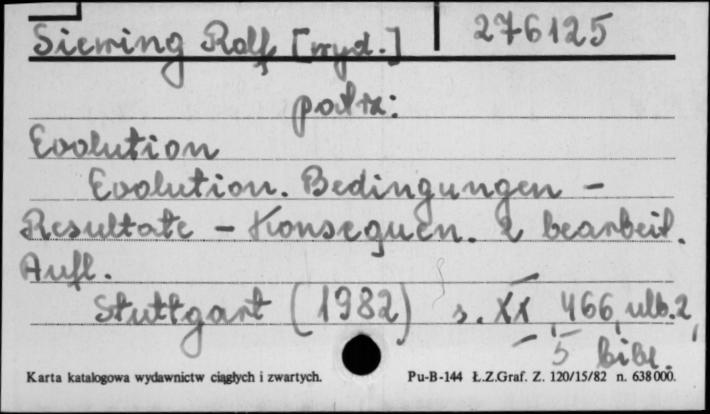 Siewing Rolf [wyd.] 276125
patrz:
Evolution
Evolution. Bedingungen -
Resultate - Konsequen. 2 bearbeit.
Aufl.
Stuttgart (1982) s. XX, 466,
5 bibl.
Karta katalogowa wydawnictw ciągłych i zwartych. Pu-B-144 Ł.Z.Graf. Z. 120/15/82 n. 638000.